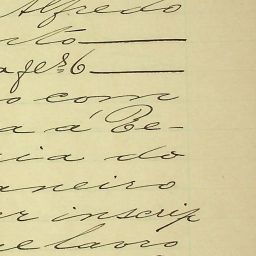 Alfredo
to
a fls 6
o com
a á Re-
cia do
aneiro
er inscrip
e lavro